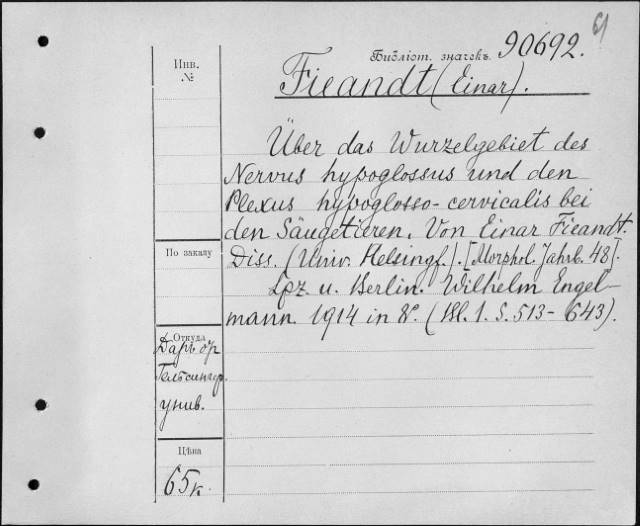 61
Библіот. значекъ. 90692.
Инв.
№
Fieandt (Einar).
Über das Wurzelgebiet des
Nervus hypoglossus und den
Plexus hypoglosso-cervicalis bei
den Säugetieren. Von Einar Fieandt.
По заказу
Diss. (Univ. Helsingf.). [Morphol. Jahrb. 48].
Lpz. u. Berlin. Wilhelm Engel-
mann 1914 in 8°. (Bl. 1. S. 513-643).
Откуда
Даръ от
Гельсингф.
унив.
Цѣна
65 к.